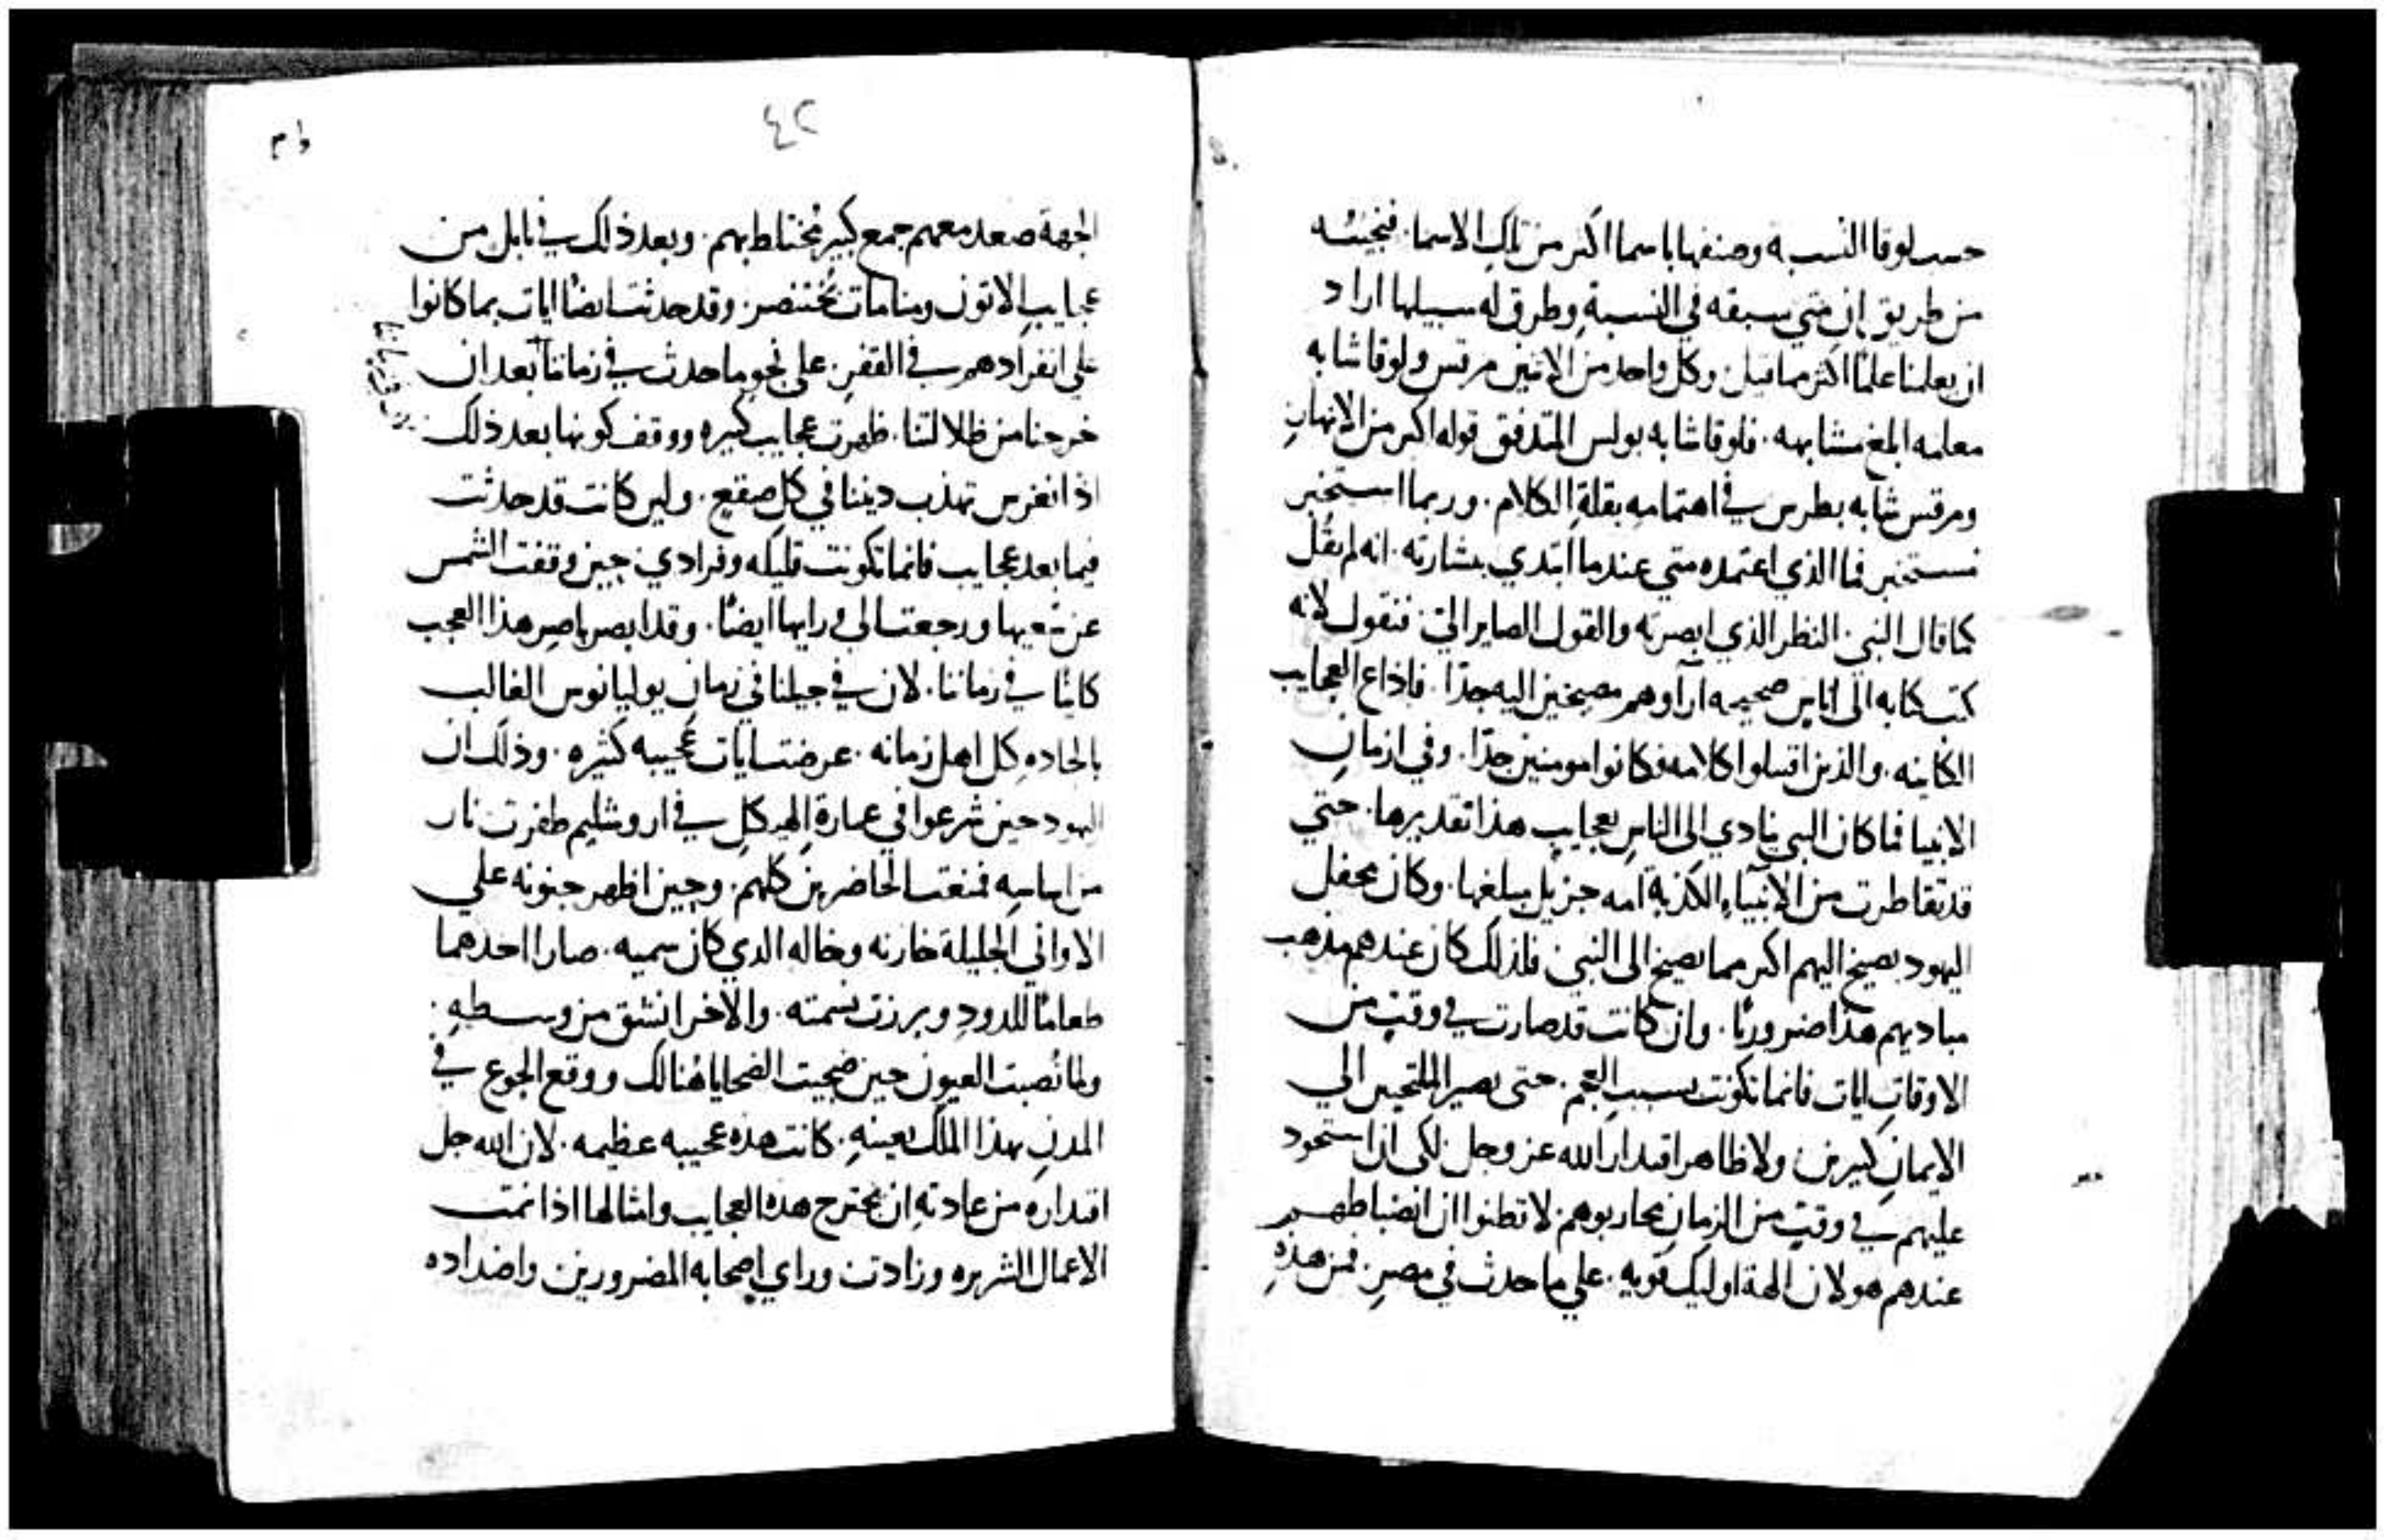 حسب لوقا النسبه وصنفها باسما اكثر من تلك الاسما. فنجيبه
من طريق ان متي سبقه في النسبة وطرق له سبيلها اراد
ان يعلمنا علمًا اكثر مما قيل. وكل واحد من الاثنين مرقس ولوقا شابه
معلمه ابلغ مشابهه. فلوقا شابه بولس المتدفق قوله اكثر من الانهار
ومرقس شابه بطرس في اهتمامه بقلة الكلام. وربما استخبر
مستخبر فما الذي اعتمده متي عندما ابتدي بشارته. انه لم يقل
كما قال النبي النظر الذي ابصرته والقول الصاير الي. فنقول لانه
كتب كتابه الى اناس صحيحه ارآوهم مصيخين اليه جدًا. فاذاع العجايب
الكاينه. والذين اقتبلوا كلامه فكانوا مومنين جدًا. وفي ازمان
الانبيا فما كان النبي ينادي الى الناس بعجايب هذا تقديرها. حتي
قد تقاطرت من الانبياء الكذبة امه جزيل مبلغها. وكان محفل
اليهود يصيخ اليهم اكثر مما يصيخ الى النبي فلذلك كان عندهم مذهب
مباديهم هذا ضروريًا. وان كانت قد صارت في وقتٍ من
الاوقات ايات فانما تكونت بسبب العجم. حتى يصير الملتجين الي
الايمان كثيرين. ولاظاهر اقتدار الله عز وجل لكي اذا استحود
عليهم في وقتٍ من الزمان محاربوهم. لا تظنوا ان انضباطهم
عندهم هو لان الهة اوليك قويه. علي ما حدث في مصر. فمن هذه
٤٢
الجهة صعد معهم جمع كبير مختلط بهم. وبعد ذلك في بابل من
عجايب الاتون ومنامات بختنصر. وقد حدثت ايضًا ايات بما كانوا
علي انفرادهم في القفر. علي نحو ما حدث في زماننا بعد ان
خرجنا من ظلالتنا. ظهرت عجايب كثيره ووقف كونها بعد ذلك
اذ انغرس تهذب ديننا في كل صقع. ولين كانت قد حدثت
فيما بعد عجايب فانما تكونت قليله وفرادي. حين وقفت الشمس
عن سعيها ورجعت الي ورايها ايضًا. وقد ابصر باصر هذا العجب
كاينًا في زماننا. لان في جيلنا في زمان يوليانوس الغالب
بالحاده كل اهل زمانه. عرضت ايات عجيبه كثيره. وذلك ان
اليهود حين شرعوا في عمارة الهيكل في اروشليم طفرت نار
من اساسه فمنعت الحاضرين كلهم. وحين اظهر جنونه علي
الاواني الجليلة خازنه وخاله الدي كان سميه. صارا احدهما
طعامًا للدود وبرزت نسمته. والاخر انشق من وسطه.
ولما نصبت العيون حين ضحيت الضحايا هنالك ووقع الجوع في
المدن بهذا الملك بعينه. كانت هذه عجيبه عظيمه. لان الله جل
اقتداره من عادته ان يجترح هذه العجايب وامثالها اذا نمت
الاعمال الشريره وزادت وراي اصحابه المضرورين واضداده